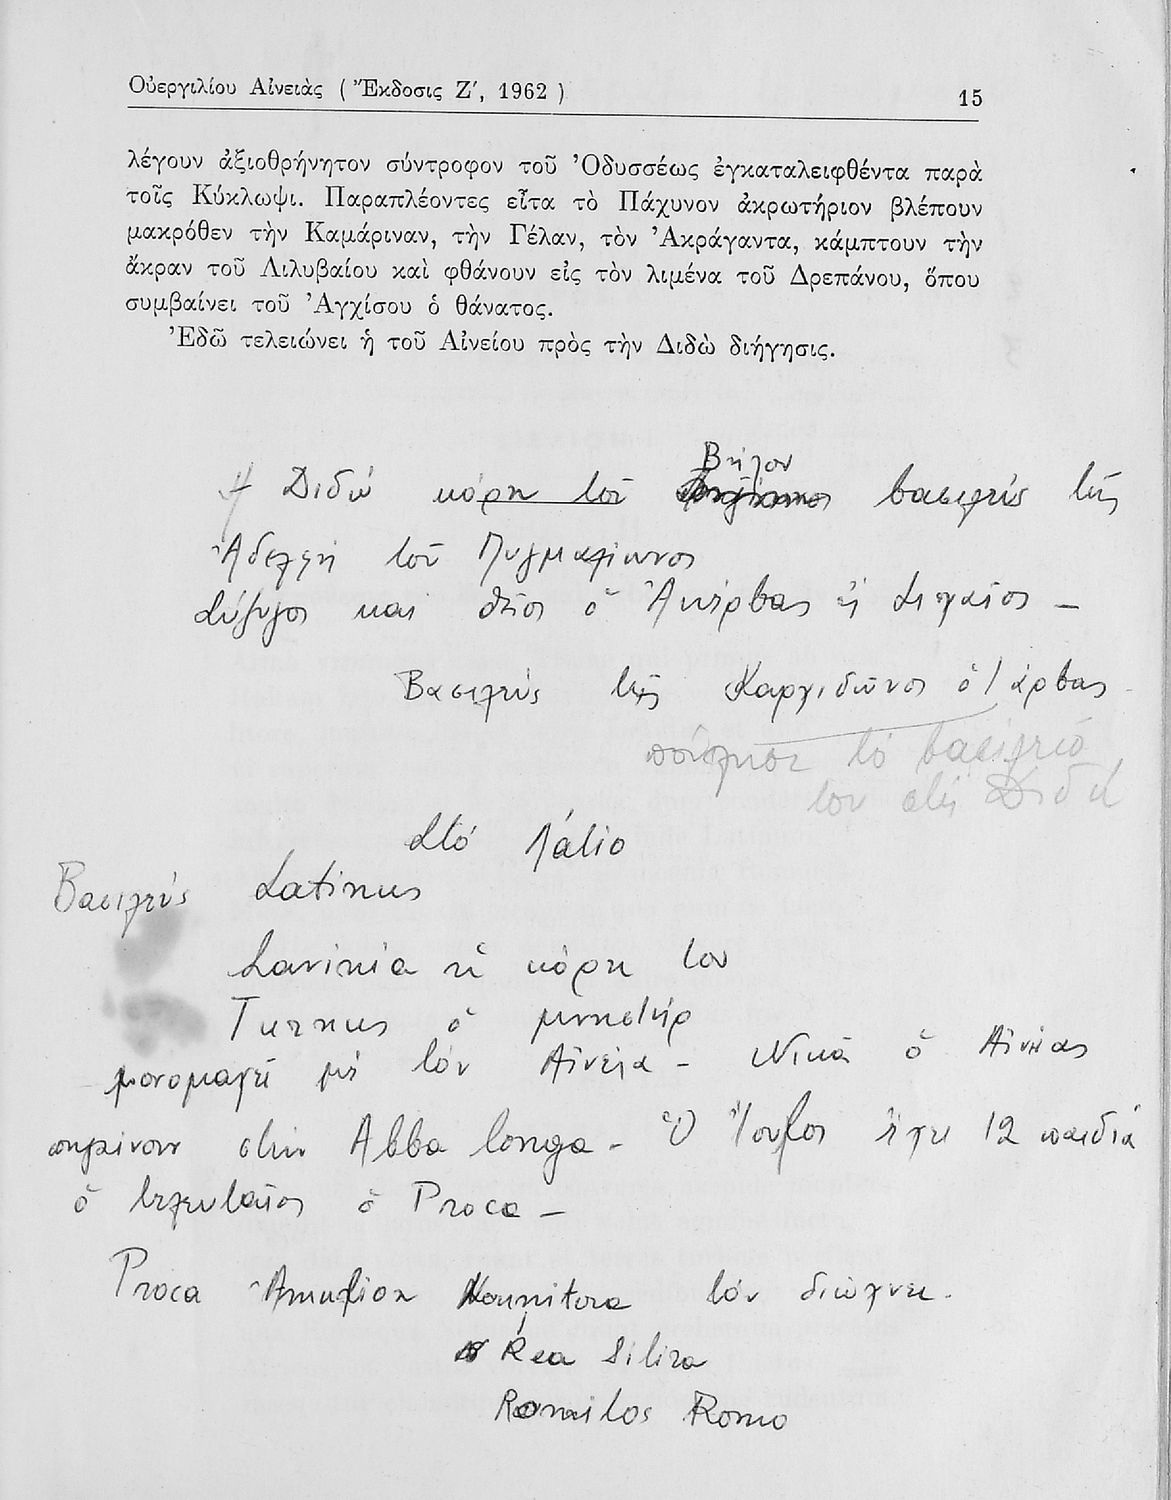 Οὐεργιλίου Αἰνειὰς ( Ἔκδοσις Ζʹ, 1962 ) 15
λέγουν ἀξιοθρήνητον σύντροφον τοῦ Ὀδυσσέως ἐγκαταλειφθέντα παρὰ
τοῖς Κύκλωψι. Παραπλέοντες εἶτα τὸ Πάχυνον ἀκρωτήριον βλέπουν
μακρόθεν τὴν Καμάριναν, τὴν Γέλαν, τὸν Ἀκράγαντα, κάμπτουν τὴν
ἄκραν τοῦ Λιλυβαίου καὶ φθάνουν εἰς τὸν λιμένα τοῦ Δρεπάνου, ὅπου
συμβαίνει τοῦ Ἀγχίσου ὁ θάνατος.
Ἐδῶ τελειώνει ἡ τοῦ Αἰνείου πρὸς τὴν Διδὼ διήγησις.
Βήλου
Ἡ Διδώ κόρη τοῦ βασιλεύς τῆς
Ἀδελφή τοῦ Πυγμαλίωνος
Σύζυγος καί θεῖος ὁ Ἀκέρβας ἤ Σιχαῖος –
Βασιλεύς τῆς Καρχιδῶνος ὁ Ἰάρβας
πούλησε τό βασίλειό
του στή Διδώ
Στό Λάτιο
Βασιλεύς Latinus
Lavinia ἡ κόρη του
Turnus ὁ μνηστήρ
μονομαχεῖ μέ τόν Αἰνεία – Νικᾶ ὁ Αἰνείας
πηγαίνουν στήν Abba longa – Ὁ Ἴουλος ἔχει 12 παιδιά
ὁ τελευταῖος ὁ Proca –
Proca Ἀμούλιος Νουμίτορα τόν διώχνει.
Rea Silira
Romilos Romo